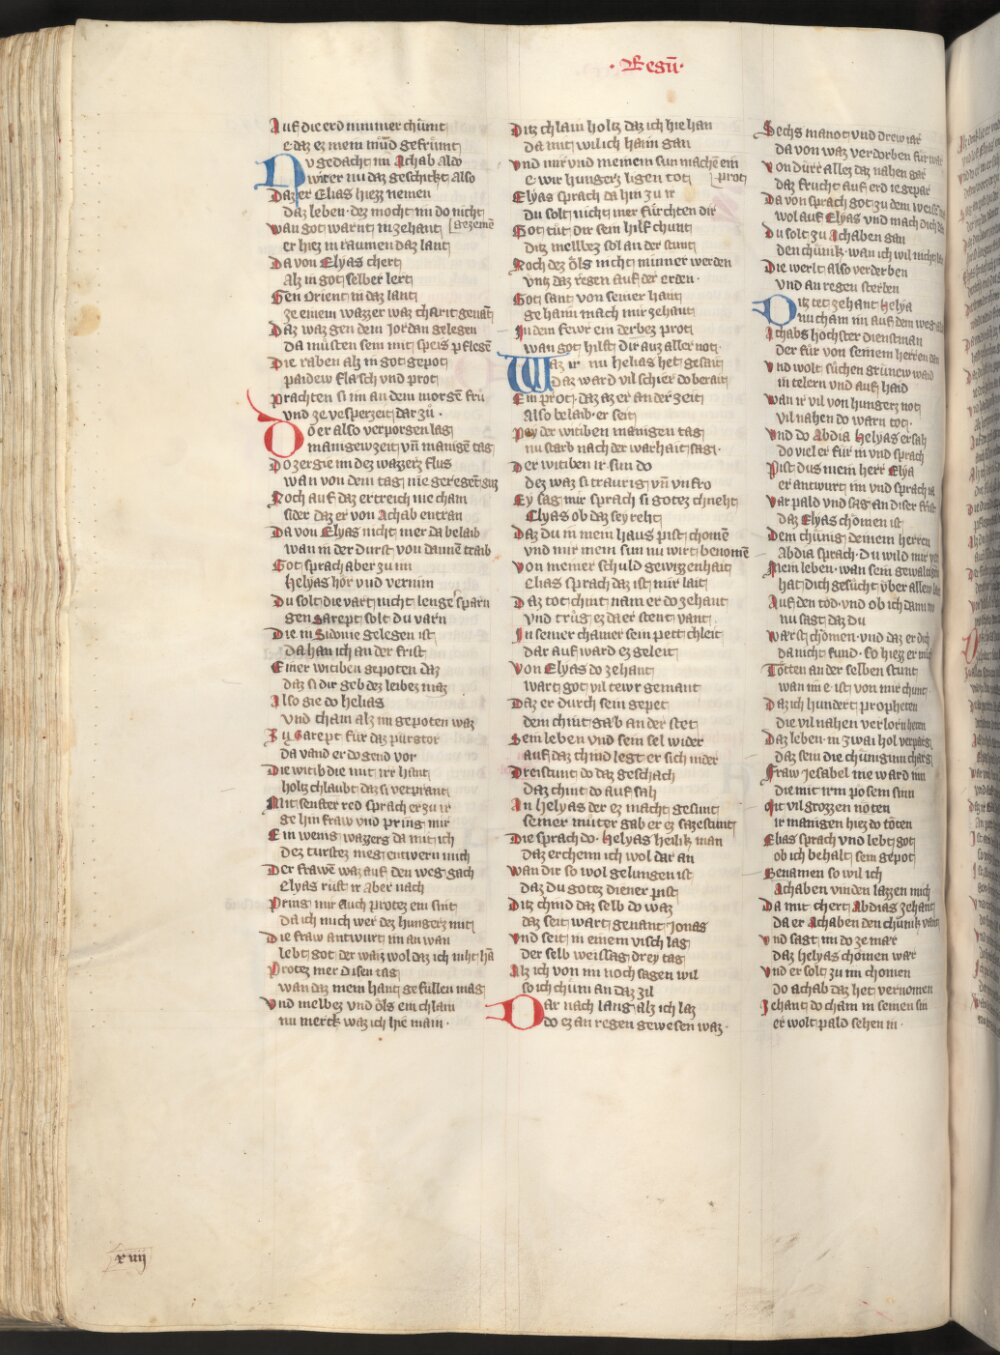 · Regū ·
Auf die erd nimmer chůmt
e daz ez mein mūd gefrümt
Du gedacht im Achab also
wirer nu daz geschickt also
Daz er Elias hiez nemen
daz leben · dez mocht im do nicht
gezemē
wan got warnt in zehant
er hiez in raumen daz lant
Da von Elyas chert
alz in got selber lert
Gen Orient in daz lant
ze einem wazzer waz charit genāt
Daz waz gen dem Jordan gelegen
da můsten sein mit speis pflegē
Die raben alz in got gepot
paidew flaisch vnd prot
Prachten si im an dem morgē frü
vnd ze vesperzeit dar zů ·
Do er also verporgen lag
manigew zeit vn̄ manigē tag
Do zergie im dez wazzerz flus
wan von dem tag nie geregēt
Noch auf daz ertreich nie cham
sider daz er von Achab entran
Da von Elyas nicht mer da belaib
wan in der durst von dannē traib
Got sprach aber zu im
Helyas hör vnd vernim
Du solt die vart nicht lenger sparn
gen Sarept solt du varn
Die in Sidonie gelegen ist
da han ich an der frist
Einer witiben gepoten daz
daz si dir geb dez leibez maz
Also gie do helias
vnd cham alz im gepoten waz
Zu Sarept für daz pürgtor
da vand er do gend vor
Die witib die mit irr hant
holtz chlaubt daz si verprant
Mit senfter red sprach er zu ir
ge hin fraw vnd pring mir
Ein wenig wazzerz da mit ich
dez turstez meg entwern mich
Der frawē waz auf den weg gach
Elyas rüft ir aber nach
Pring mir auch protez ein snit
da ich mich wer dez hungerz mit
Die fraw antwurt im an wan
lebt got der waiz wol daz ich niht hā
Protez mer disen tag
wan daz mein hant gefüllen mag
Vnd melbez vnd öls ein chlain
nu merck waz ich hie main ·
Ditz chlain holtz daz ich hie han
da mit wil ich haim gan
Vnd mir vnd meinem sun machē ein
prot
e wir hungerz ligen tot
Elyas sprach da hin zu ir
du solt nicht mer fürchten dir
Got tůt dir sein hilf chunt
ditz melbez sol an der stunt
Noch dez öls nicht minner werden
vntz daz regen auf der erden ·
Got sant von seiner hant
ge haim mach mir zehant
In dem fewr ein derbez prot
wan got hilft dir auz aller not
Waz ir nu helias het gesait
daz ward vil schier do berait
Ein prot · daz az er an der zeit
also belaib · er seit
Pey der witiben manigen tag
nu starb nach der warhait sag ·
Der witiben ir sun do
dez waz si traurig vn̄ vnfro
Ey sag mir sprach si gotez chneht
Elyas ob daz sey reht
Daz du in mein haus pist chomē
vnd mir mein sun nu wirt benomen
Von meiner schuld gewizenhait
Elias sprach daz ist mir lait
Daz tot chint nam er do zehant
vnd trůg ez da er stent vant
In seiner chamer sein pett chleit
dar auf ward ez geleit
Von Elyas do zehant
wart got vil tewr gemant
Daz er durch sein gepet
dem chint gab an der stet
Sein leben vnd sein sel wider
auf daz chind legt er sich nider
Dreistunt do daz geschach
daz chint do auf sah
In helyas der ez macht gesunt
seiner můter gab er ez sazestunt
Die sprach do · Helyas heilik man
daz erchenn ich wol dar an
Wan dir so wol gelungen ist
daz du gotez diener pist
Ditz chind daz selb do waz
daz seit wart genant Jonas
Vnd seit in einem visch lag
der selb weissag drey tag
Alz ich von im noch sagen wil
so ich chum an daz zil
Dar nach lang alz ich laz
do ez an regen gewesen waz ·
Sechs manot vnd drew iar
da von waz verdorben für war
Von dürr allez daz nahen gar
daz frucht auf erd ie gepar
Da von sprach got zu dem
wol auf Elyas vnd mach dich
Du solt zu Achaben gan
den chünik · wan ich wil nicht
Die werlt also verderben
vnd an regen sterben
Ditz tet zehant helya
nu cham im auf dem weg
Achabs hochster dienstman
der für von seinem herren dan
Vnd wolt süchen grünew waid
in telern vnd auf haid
Wan ir vil von hungerz not
vil nahen do warn tot ·
Vnd do Abdia Helyas ersah
do viel er für in vnd sprach
Pist dus mein herr Elya
er antwurt im vnd sprach ia
Var pald vnd sag an diser frist
daz Elyas chömen ist
Dem chünig deinem herren
Abdia sprach · Du wild mir
Mein leben · wan sein gewalt
hat dich gesücht vber alle
Auf den tod · vnd ob ich dann
nu sagt daz du
Warst chömen · vnd daz er dich
da nicht fund · so hiez er mich
Tötten an der selben stunt
wan im e ist von mir chunt
Daz ich hundert propheten
die vil nahen verlorn heten
Daz leben · in zwai hol verparg
daz sein die chüniginn charg
Fraw Jesabel inne ward nin
die mit irm posem sinn
Mit vil grozzen nöten
ir manigen hiez do töten
Elias sprach vnd lebt got
ob ich behalt sein gepot
Benamen so wil ich
Achaben vinden lazzen mich
Da mit chert Abdias zehant
da er Achaben den chünik vant
Vnd sagt im do ze mar
daz helyas chömen war
Vnd er solt zu im chomen
do achab daz het vernomen
Zehant do cham in seinen sin
er wolt pald sehen in ·
xviij